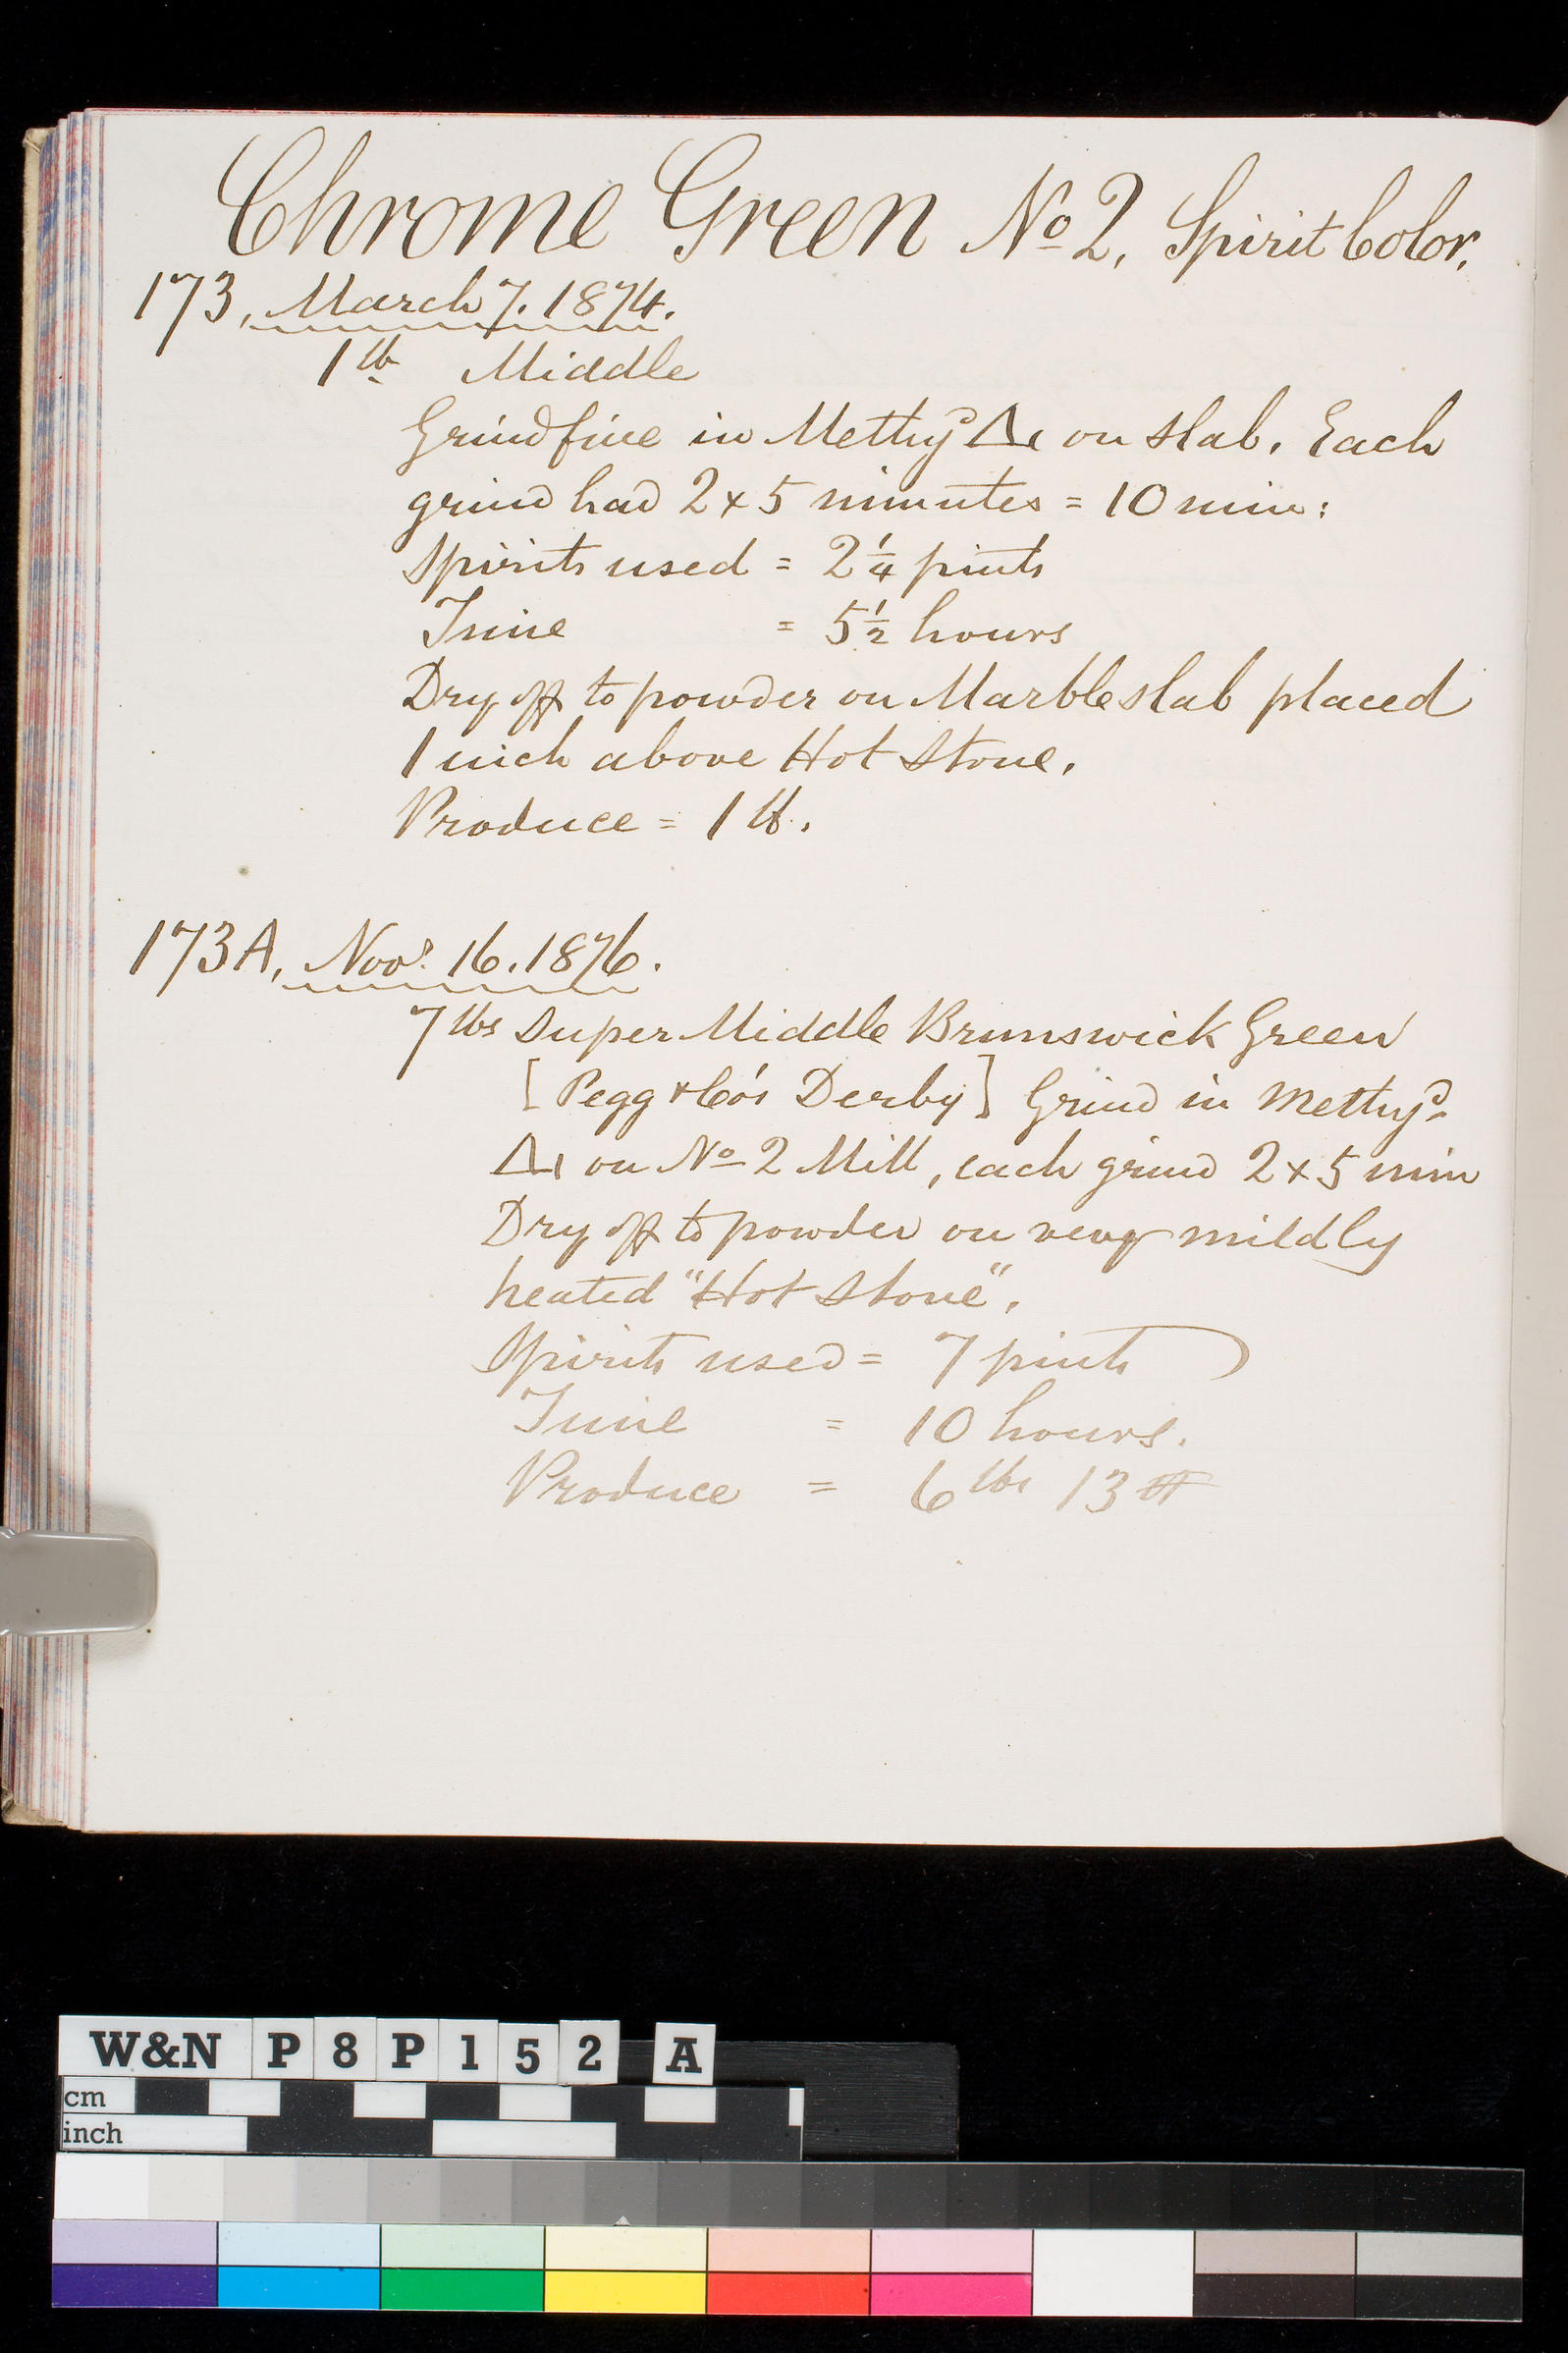 Chrome Green No 2, Spirit Color.
173, March 7. 1874.
1 lb Middle
Grind fine in Methyd △ on slab. Each
grind had 2 x 5 minutes = 10 min:
Spirits used = 2 1/4 pints
Time = 5 1/2 hours
Dry off to powder on Marble slab placed
1 inch above Hot Stone.
Produce = 1 lb.
173A, Novr. 16. 1876.
7 lbs Super Middle Brunswick Green
[Pegg & Co's Derby] Grind in Methyd
△ on No 2 Mill, each grind 2 x 5 min
Dry off to powder on very mildly
heated "Hot Stone".
Spirits used = 7 pints
Time = 10 hours.
Produce = 6 lbs 13
W&N P 8 P 1 5 2 A
cm
inch